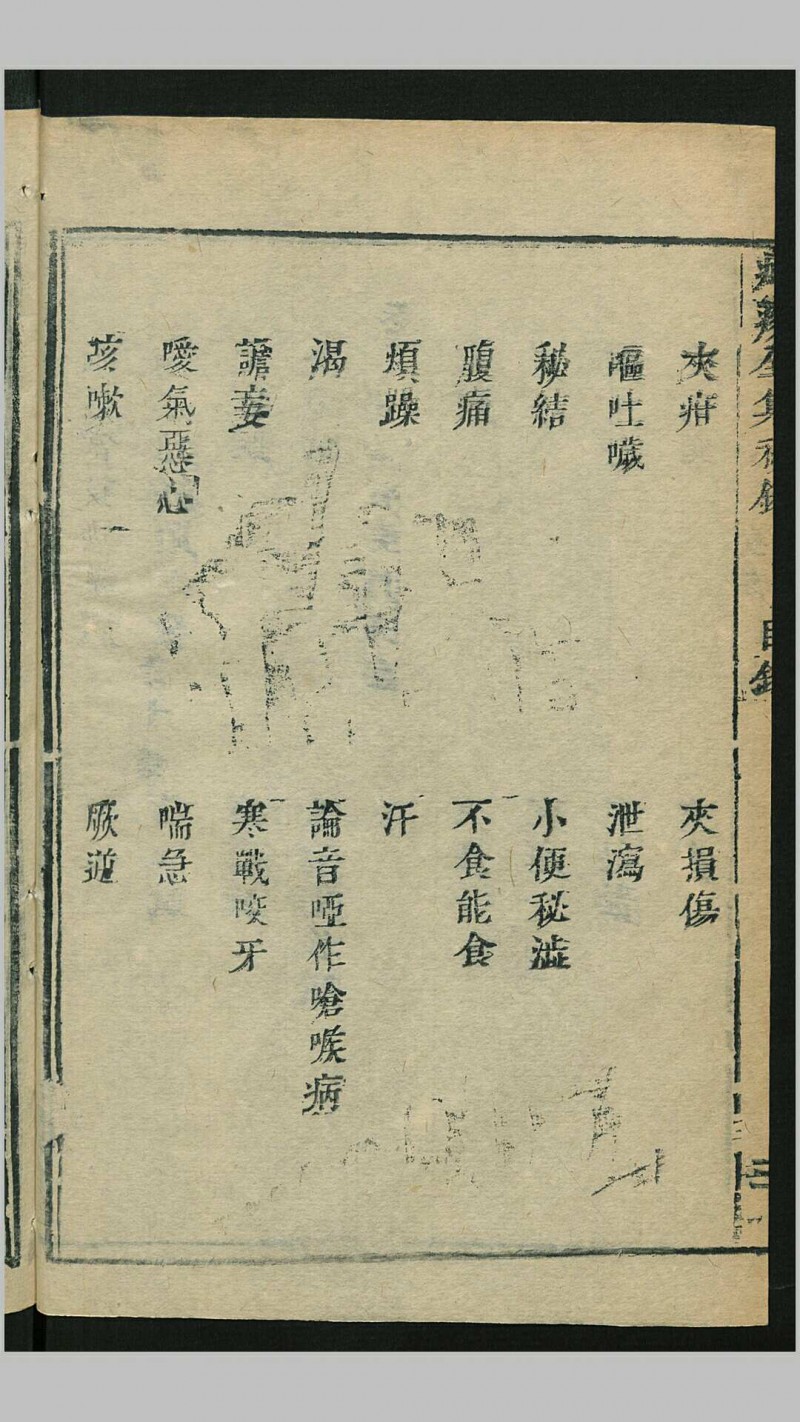 夾疳
夾損傷
嘔吐噦
泄瀉
秘結
小便秘澁
腹痛
不食能食
煩躁
汗
渴
論音啞作嗆喉病
譫妄
寒戰咬牙
噯氣惡心
喘急
咳嗽
厥逆